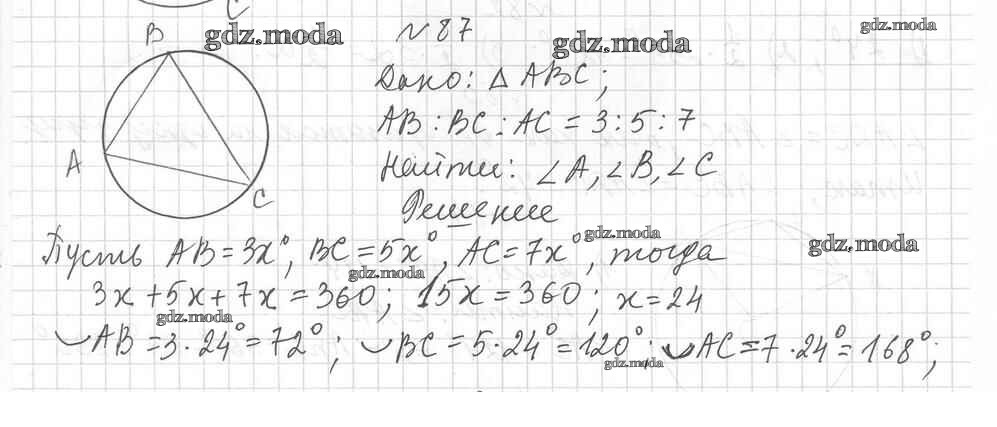 C
B
gdz.moda
№87
gdz.moda
gdz.moda
Дано: △ ABC;
AB : BC : AC = 3 : 5 : 7
A
Найти: ∠A, ∠B, ∠C
C
Решение
Пусть AB = 3x°, BC = 5x°, AC = 7x°, тогда
gdz.moda
gdz.moda
gdz.moda
3x + 5x + 7x = 360; 15x = 360; x = 24
gdz.moda
◡AB = 3 · 24° = 72°; ◡BC = 5 · 24° = 120°; ◡AC = 7 · 24° = 168°;
gdz.moda